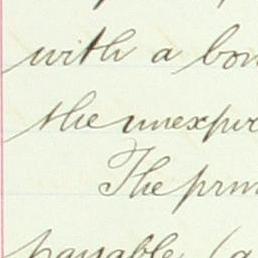 with a bon
the unexpir
The prin
payable (a